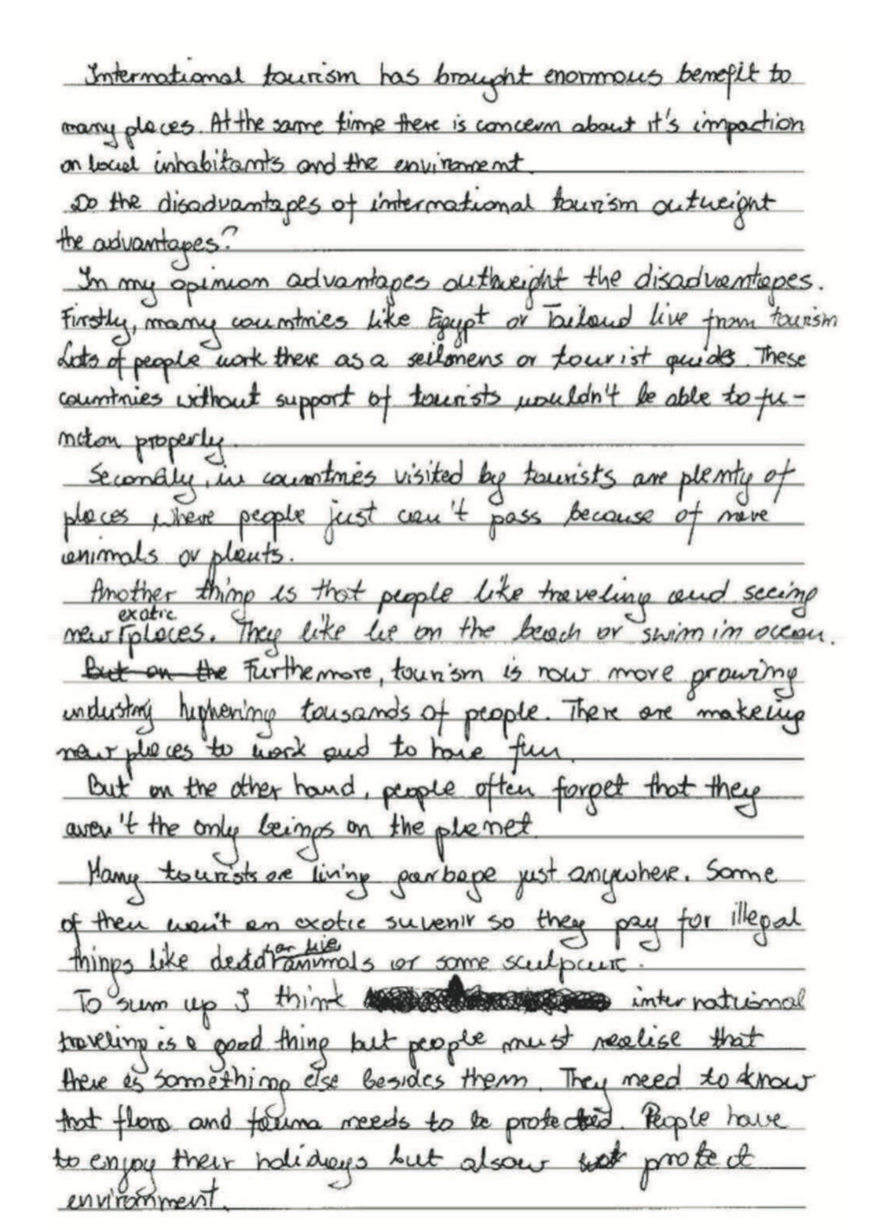 International tourism has brought enormous benefit to
many places. At the same time there is concern about it's impaction
on local inhabitants and the enviroment.
Do the disadvantages of international tourism outweight
the advantages?
In my opinion advantages outweight the disadvantages.
Firstly, many countries like Egypt or Tailand live from tourism
Lots of people work there as a seilsmens or tourist guids. These
countries without support of tourists wouldn't be able to fu-
ncton properly.
Secondly, in countries visited by tourists are plenty of
places where people just can't pass because of
animals or plants.
Another thing is that people like traveling and seeing
new exotic places. They like lie on the beach or swim in ocean.
But on the Furthermore, tourism is now more growing
industry tousands of people. There are makeing
new places to work and to have fun.
But on the other hand, people often forget that they
aren't the only beings on the planet
Many tourists are living garbage just anywhere. Some
of them want an exotic suvenir so they pay for illegal
things like dead animals or some
To sum up I think international
traveling is a good thing but people must realise that
there is something else besides them. They need to know
that flora and fauna needs to be protected. People have
to enjoy their holidays but protect
environment.